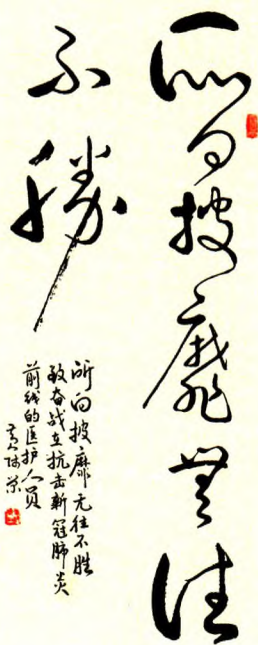 所向披靡无往
不胜
所向披靡无往不胜
致奋战在抗击新冠肺炎
前线的医护人员